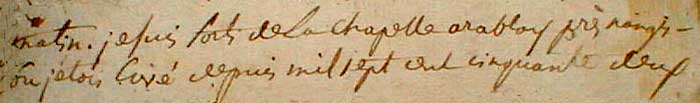 matin. je suis sorti de La chapelle arablay près nangis -
ou jetois Curé depuis mil sept cent cinquante deux